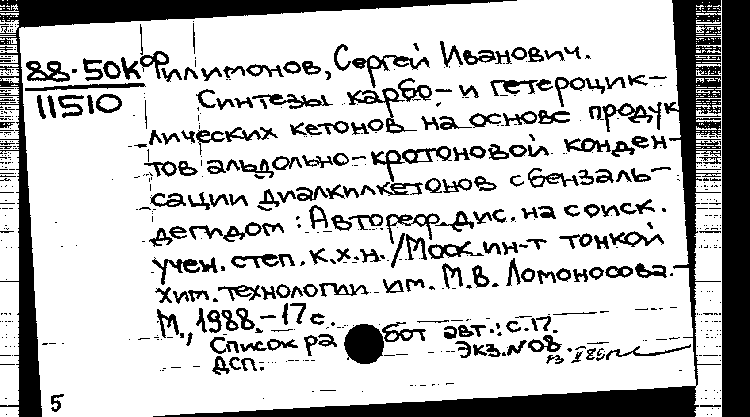 88-50К Филимонов, Сергей Иванович.
11510
Синтезы карбо- и гетероцик-
лических кетонов на основе продук
тов альдольно-кротоновой конден-
сации диалкилкетонов с бензаль-
дегидом: Автореф. дис. на соиск.
учен. степ. к.х.н. / Моск. ин-т тонкой
хим. технологии им. М.В. Ломоносова.-
М., 1988.-17 с.
Список работ авт.: с.17.
ДСП. Экз. №08.
5